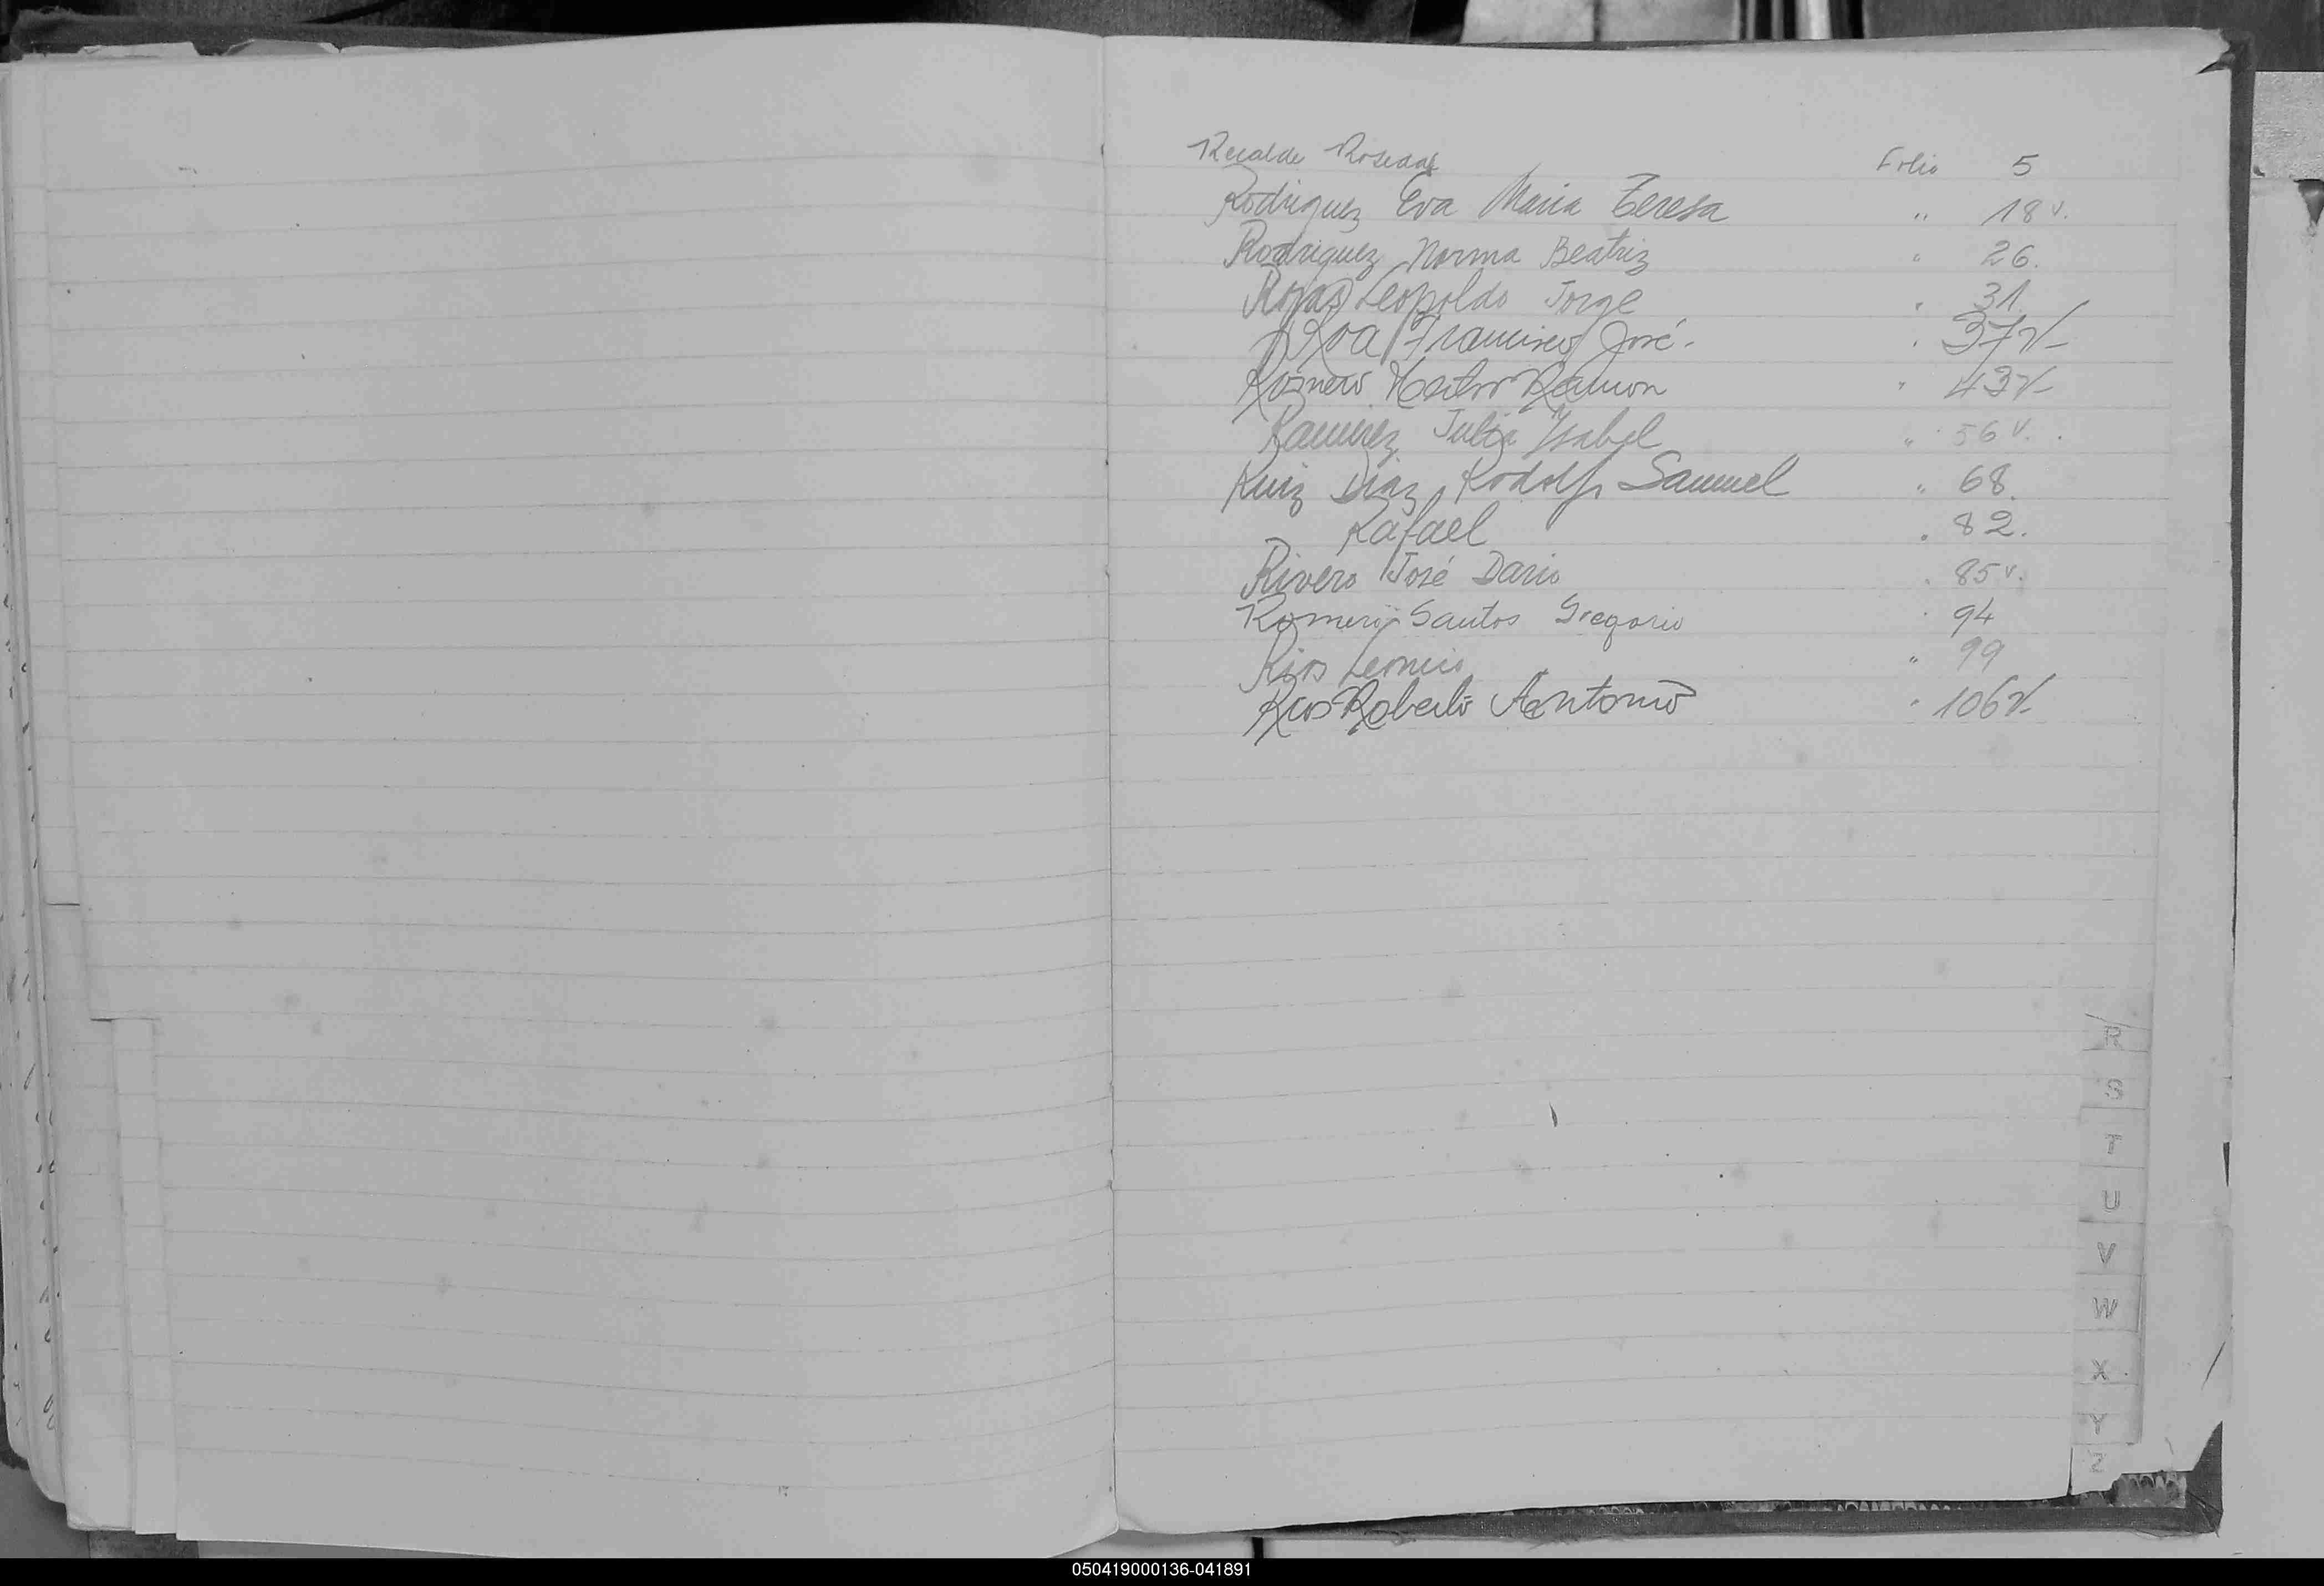 Recalde Rosedal Folio 5
Rodriguez Eva Maria Teresa " 18 v.
Rodriguez Norma Beatriz " 26.
Rojas Leopoldo Jorge " 31.
Roa Francisco José. " 37v
Romero Hector Ramon " 43v
Ramirez Julia Ysabel " 56 v.
Ruiz Diaz Rodolfo Samuel " 68.
Rafael " 82.
Rivero José Dario " 85 v.
Romero Santos Gregorio " 94
Rios " 99
Rios Roberto Antonio " 106v
R
S
T
U
V
W
X
Y
Z
050419000136-041891